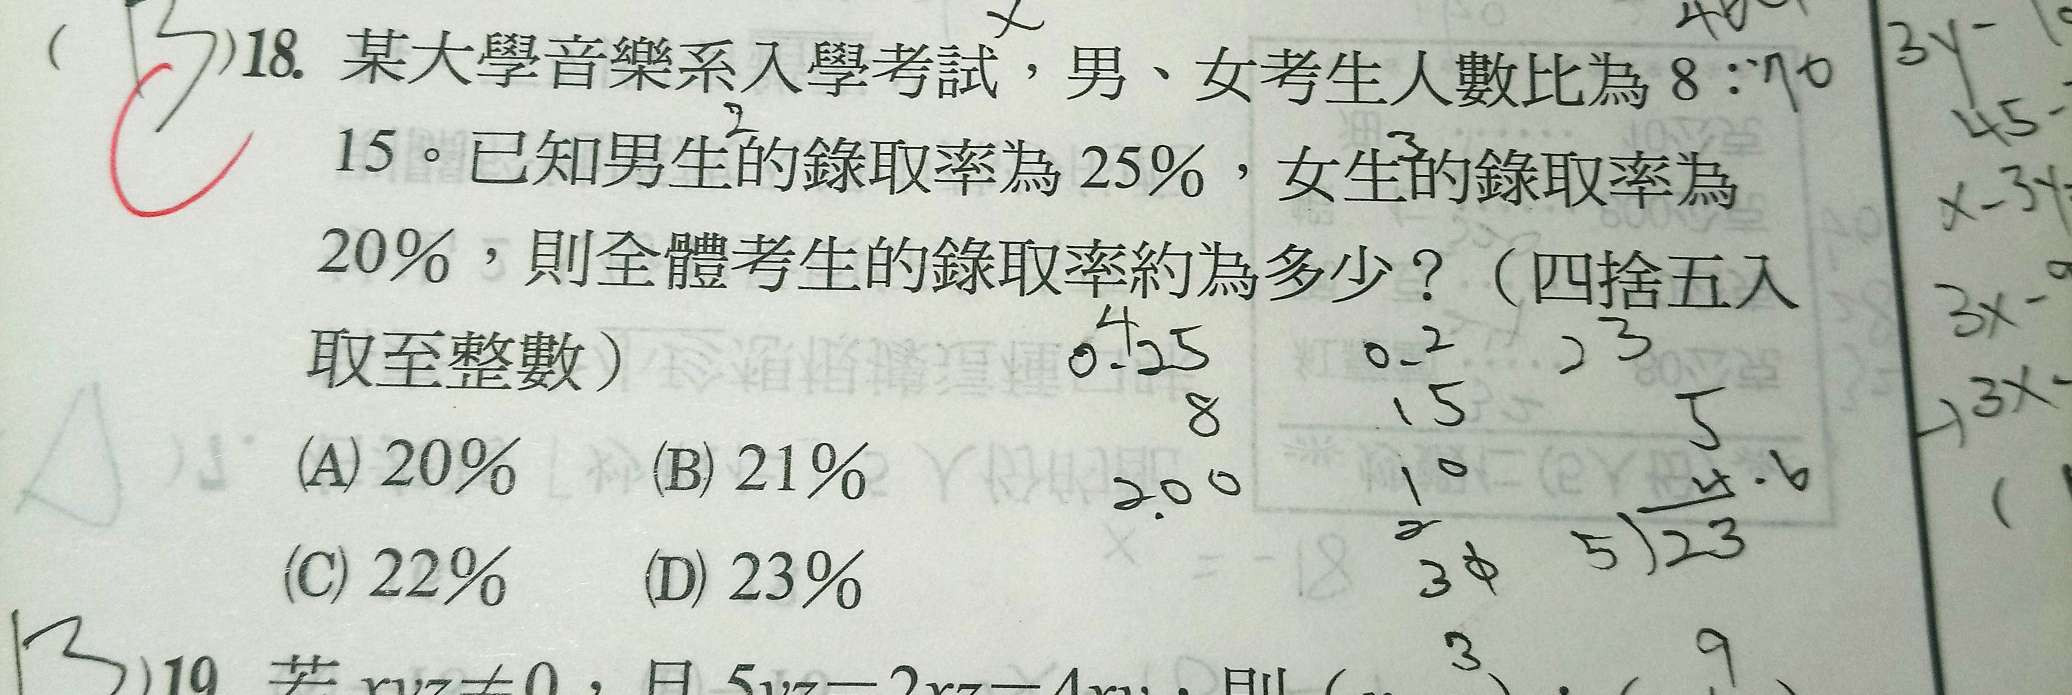 (B)18. 某大學音樂系入學考試，男、女考生人數比為 8：
15。已知男生的錄取率為 25%，女生的錄取率為
20%，則全體考生的錄取率約為多少？（四捨五入
取至整數）
(A) 20% (B) 21%
(C) 22% (D) 23%
x
2
3
C
4
0.25
8
2.00
0.2
15
10
2
3
23
5
4.6
5)23
3y-
45-
x-3y
3x-9
→3x-
B)19. 若 xyz≠0，且 5yz=2xz=4xy，則（
3
9